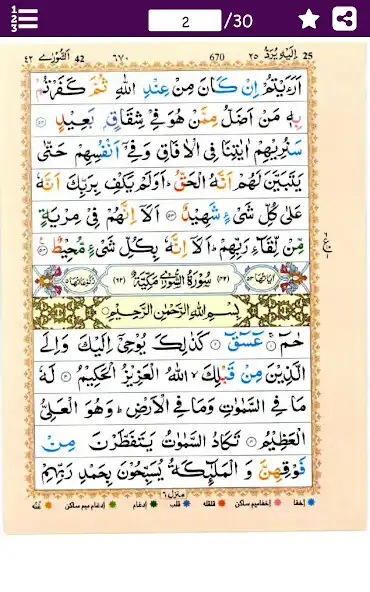 2 /30
25 اِلَيْهِ يُرَدُّ ٢٥ 670 ٦٧٠ 42 اَلشُّوْرٰى ٤٢
اَرَءَيْتُمْ اِنْ كَانَ مِنْ عِنْدِ اللّٰهِ ثُمَّ كَفَرْتُمْ
بِهٖ مَنْ اَضَلُّ مِمَّنْ هُوَ فِيْ شِقَاقٍۭ بَعِيْدٍ ۝٥٢
سَنُرِيْهِمْ اٰيٰتِنَا فِي الْاٰفَاقِ وَفِيْۤ اَنْفُسِهِمْ حَتّٰى
يَتَبَيَّنَ لَهُمْ اَنَّهُ الْحَقُّ ؕ اَوَلَمْ يَكْفِ بِرَبِّكَ اَنَّهٗ
عَلٰى كُلِّ شَيْءٍ شَهِيْدٌ ۝٥٣ اَلَاۤ اِنَّهُمْ فِيْ مِرْيَةٍ
مِّنْ لِّقَآءِ رَبِّهِمْ ؕ اَلَاۤ اِنَّهٗ بِكُلِّ شَيْءٍ مُّحِيْطٌ ۝٥٤
اٰيَاتُهَا ٥٣ (٤٢) سُوْرَةُ الشُّوْرٰى مَكِّيَّةٌ (٦٢) رُكُوْعَاتُهَا ٥
بِسْمِ اللّٰهِ الرَّحْمٰنِ الرَّحِيْمِ
حٰمٓ ۝١ عٓسٓقٓ ۝٢ كَذٰلِكَ يُوْحِيْۤ اِلَيْكَ وَاِلَى
الَّذِيْنَ مِنْ قَبْلِكَ ۙ اللّٰهُ الْعَزِيْزُ الْحَكِيْمُ ۝٣ لَهٗ
مَا فِي السَّمٰوٰتِ وَمَا فِي الْاَرْضِ ؕ وَهُوَ الْعَلِيُّ
الْعَظِيْمُ ۝٤ تَكَادُ السَّمٰوٰتُ يَتَفَطَّرْنَ مِنْ
فَوْقِهِنَّ وَ الْمَلٰٓئِكَةُ يُسَبِّحُوْنَ بِحَمْدِ رَبِّهِمْ
منزل ٦
اخفا اخفا میم ساکن قلقله قلب ادغام ادغام میم ساکن غنّه